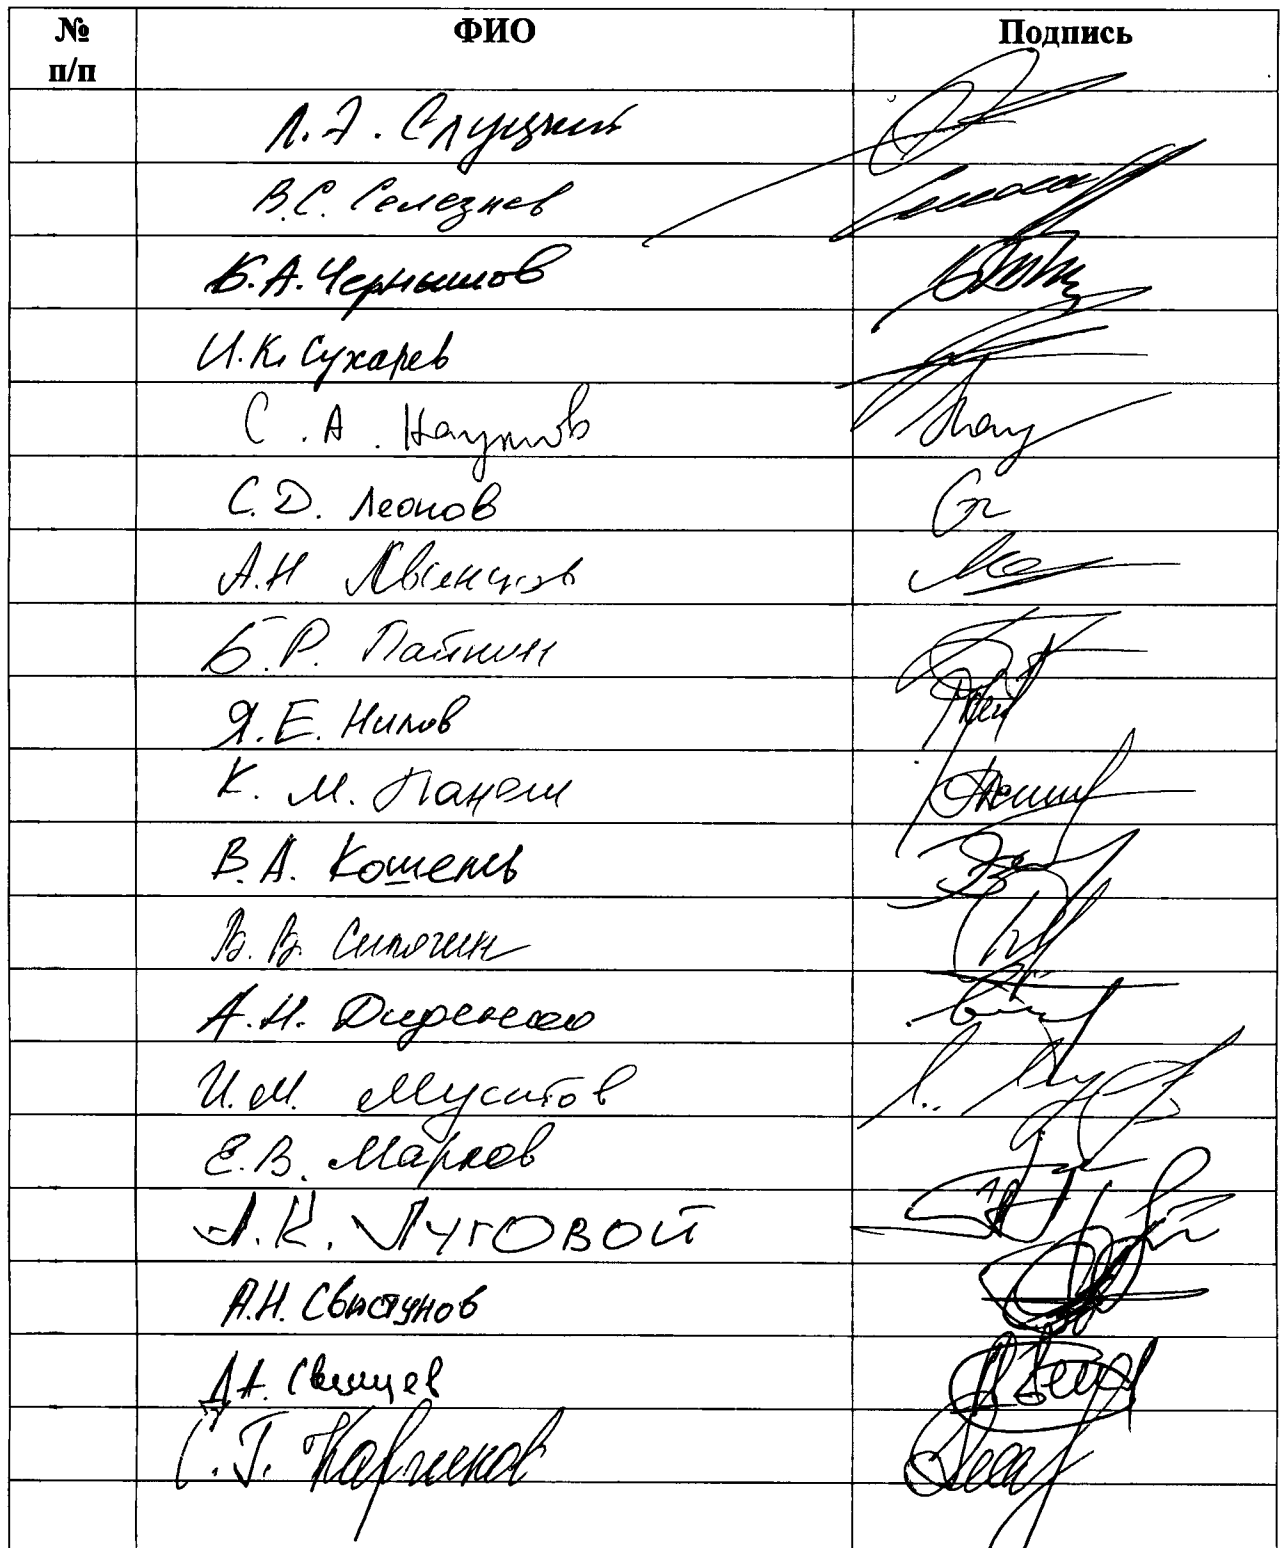 № п/п ФИО Подпись
Л.Э. Слуцкий
В.С. Селезнев
Б.А. Чернышов
И.К. Сухарев
С.А. Наумов
С.Д. Леонов
А.Н. Свинцов
Б.Р. Пайкин
Я.Е. Нилов
К.М. Панеш
В.А. Кошелев
В.В. Сипягин
А.Н. Диденко
И.М. Мусатов
Е.В. Марков
А.К. Луговой
А.Н. Свистунов
Д.А. Свищев
С.Г. Каргинов